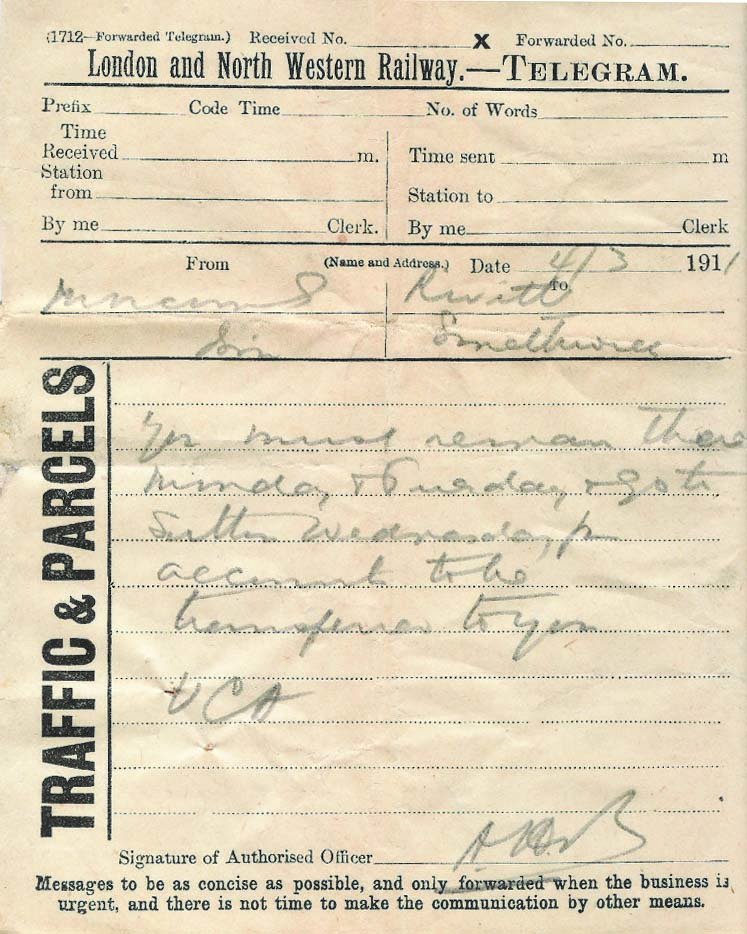 (1712—Forwarded Telegram.) Received No. X Forwarded No.
London and North Western Railway.—TELEGRAM.
Prefix Code Time No. of Words
Time
Received m. Time sent m
Station
from Station to
By me Clerk. By me Clerk
From (Name and Address.) Date 4/3 1911
To
Smethwick
TRAFFIC & PARCELS
You must remain there
Monday & Tuesday & go to
Sutton Wednesday for
accounts to be
transferred to you
Signature of Authorised Officer
Messages to be as concise as possible, and only forwarded when the business is
urgent, and there is not time to make the communication by other means.